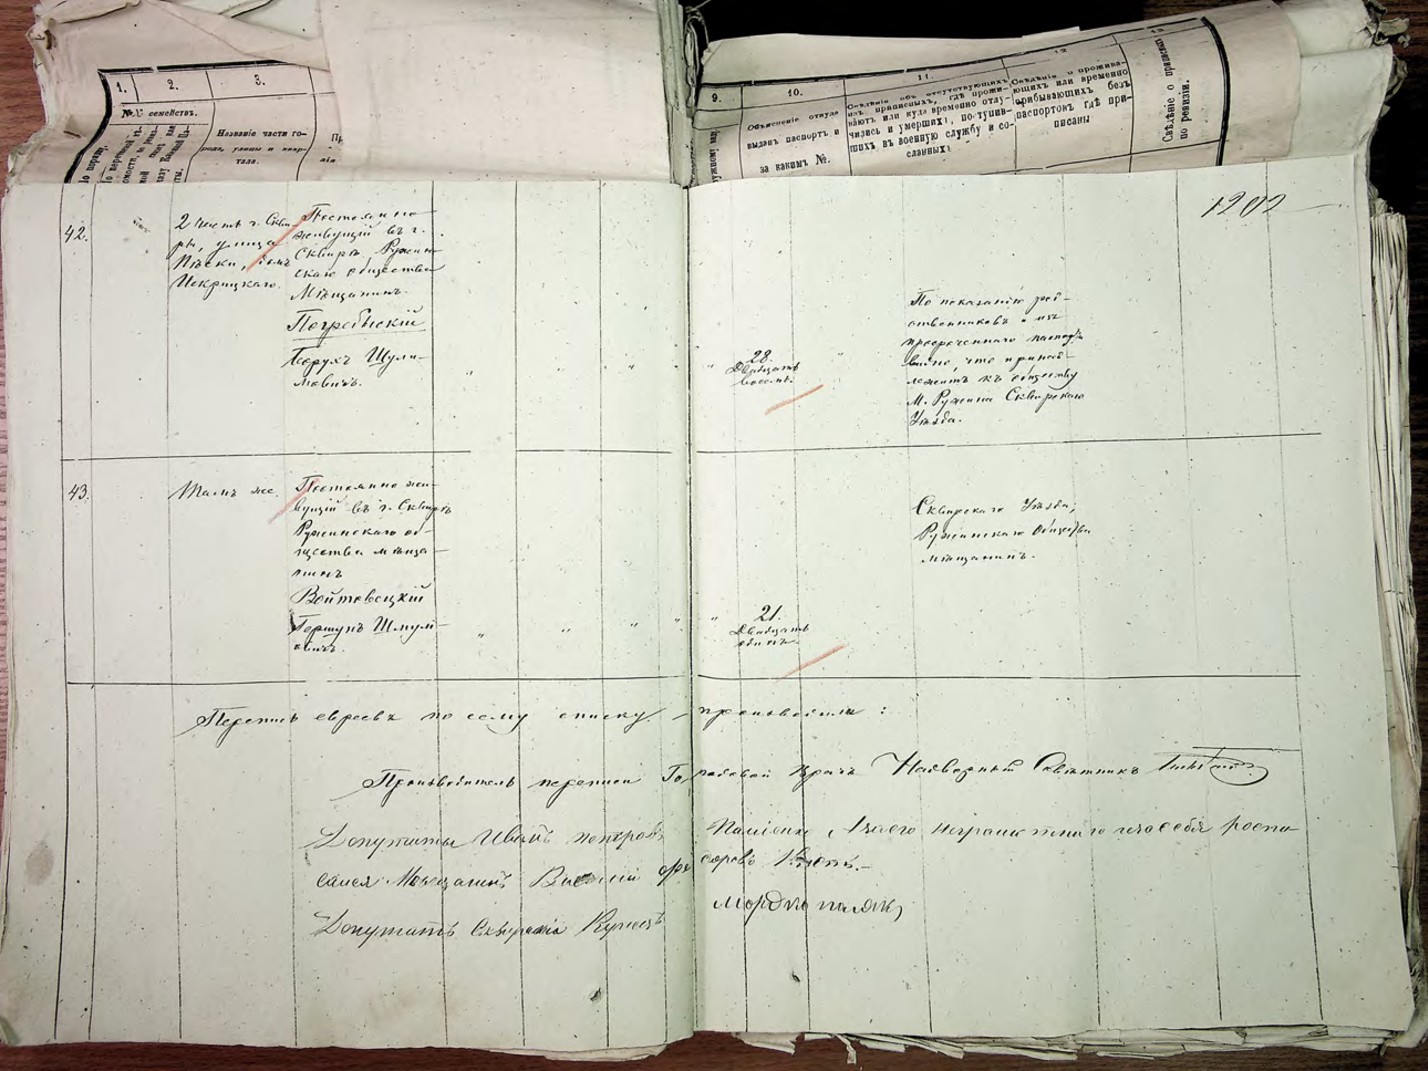 1.
2.
3.
№№ семействъ.
По порядку.
Названіе части го-
рода, улицы и квар-
тала.
9.
10.
11.
12
13
Объясненіе откуда
выданъ паспортъ и
за какимъ №.
Свѣдѣнія объ отсутствующихъ
изъ приписныхъ, гдѣ прожи-
ваютъ или куда временно отлу-
чились и умершихъ, поступив-
шихъ въ военную службу и со-
сланныхъ
Свѣдѣнія о прожива-
ющихъ или временно
прибывающихъ безъ
паспортовъ гдѣ при-
писаны
Свѣдѣніе о припискѣ
по ревизіи.
1202
42.
2 Часть г. Скви-
ры, улица
Пѣски, домъ
Искрицкаго.
Постоянно
живущій въ г.
Сквирѣ, Ружин-
скаго общества
Мѣщанинъ.
Погребыскій
Борухъ Шули-
мовичъ.
28.
Двадцать
восемь.
По показанію род-
ственниковъ и изъ
просроченнаго паспорта
видно, что принад-
лежитъ къ обществу
М. Ружина Сквирскаго
Уѣзда.
43.
Тамъ же.
Постоянно жи-
вущій въ г. Сквирѣ
Ружинскаго об-
щества мѣща-
нинъ
Войтовецкій
Гершунъ Шмуль-
овичъ.
21.
Двадцать
одинъ.
Сквирскаго Уѣзда,
Ружинскаго Общества
мѣщанинъ.
Перепись евреевъ по сему списку – производили:
Производитель переписи Городовой Врачъ Надворный Совѣтникъ
Депутаты Иванъ неграмотнаго себя роспи-
сался Мѣщанинъ Василій
Депутатъ Сквирскій Купецъ Мордко